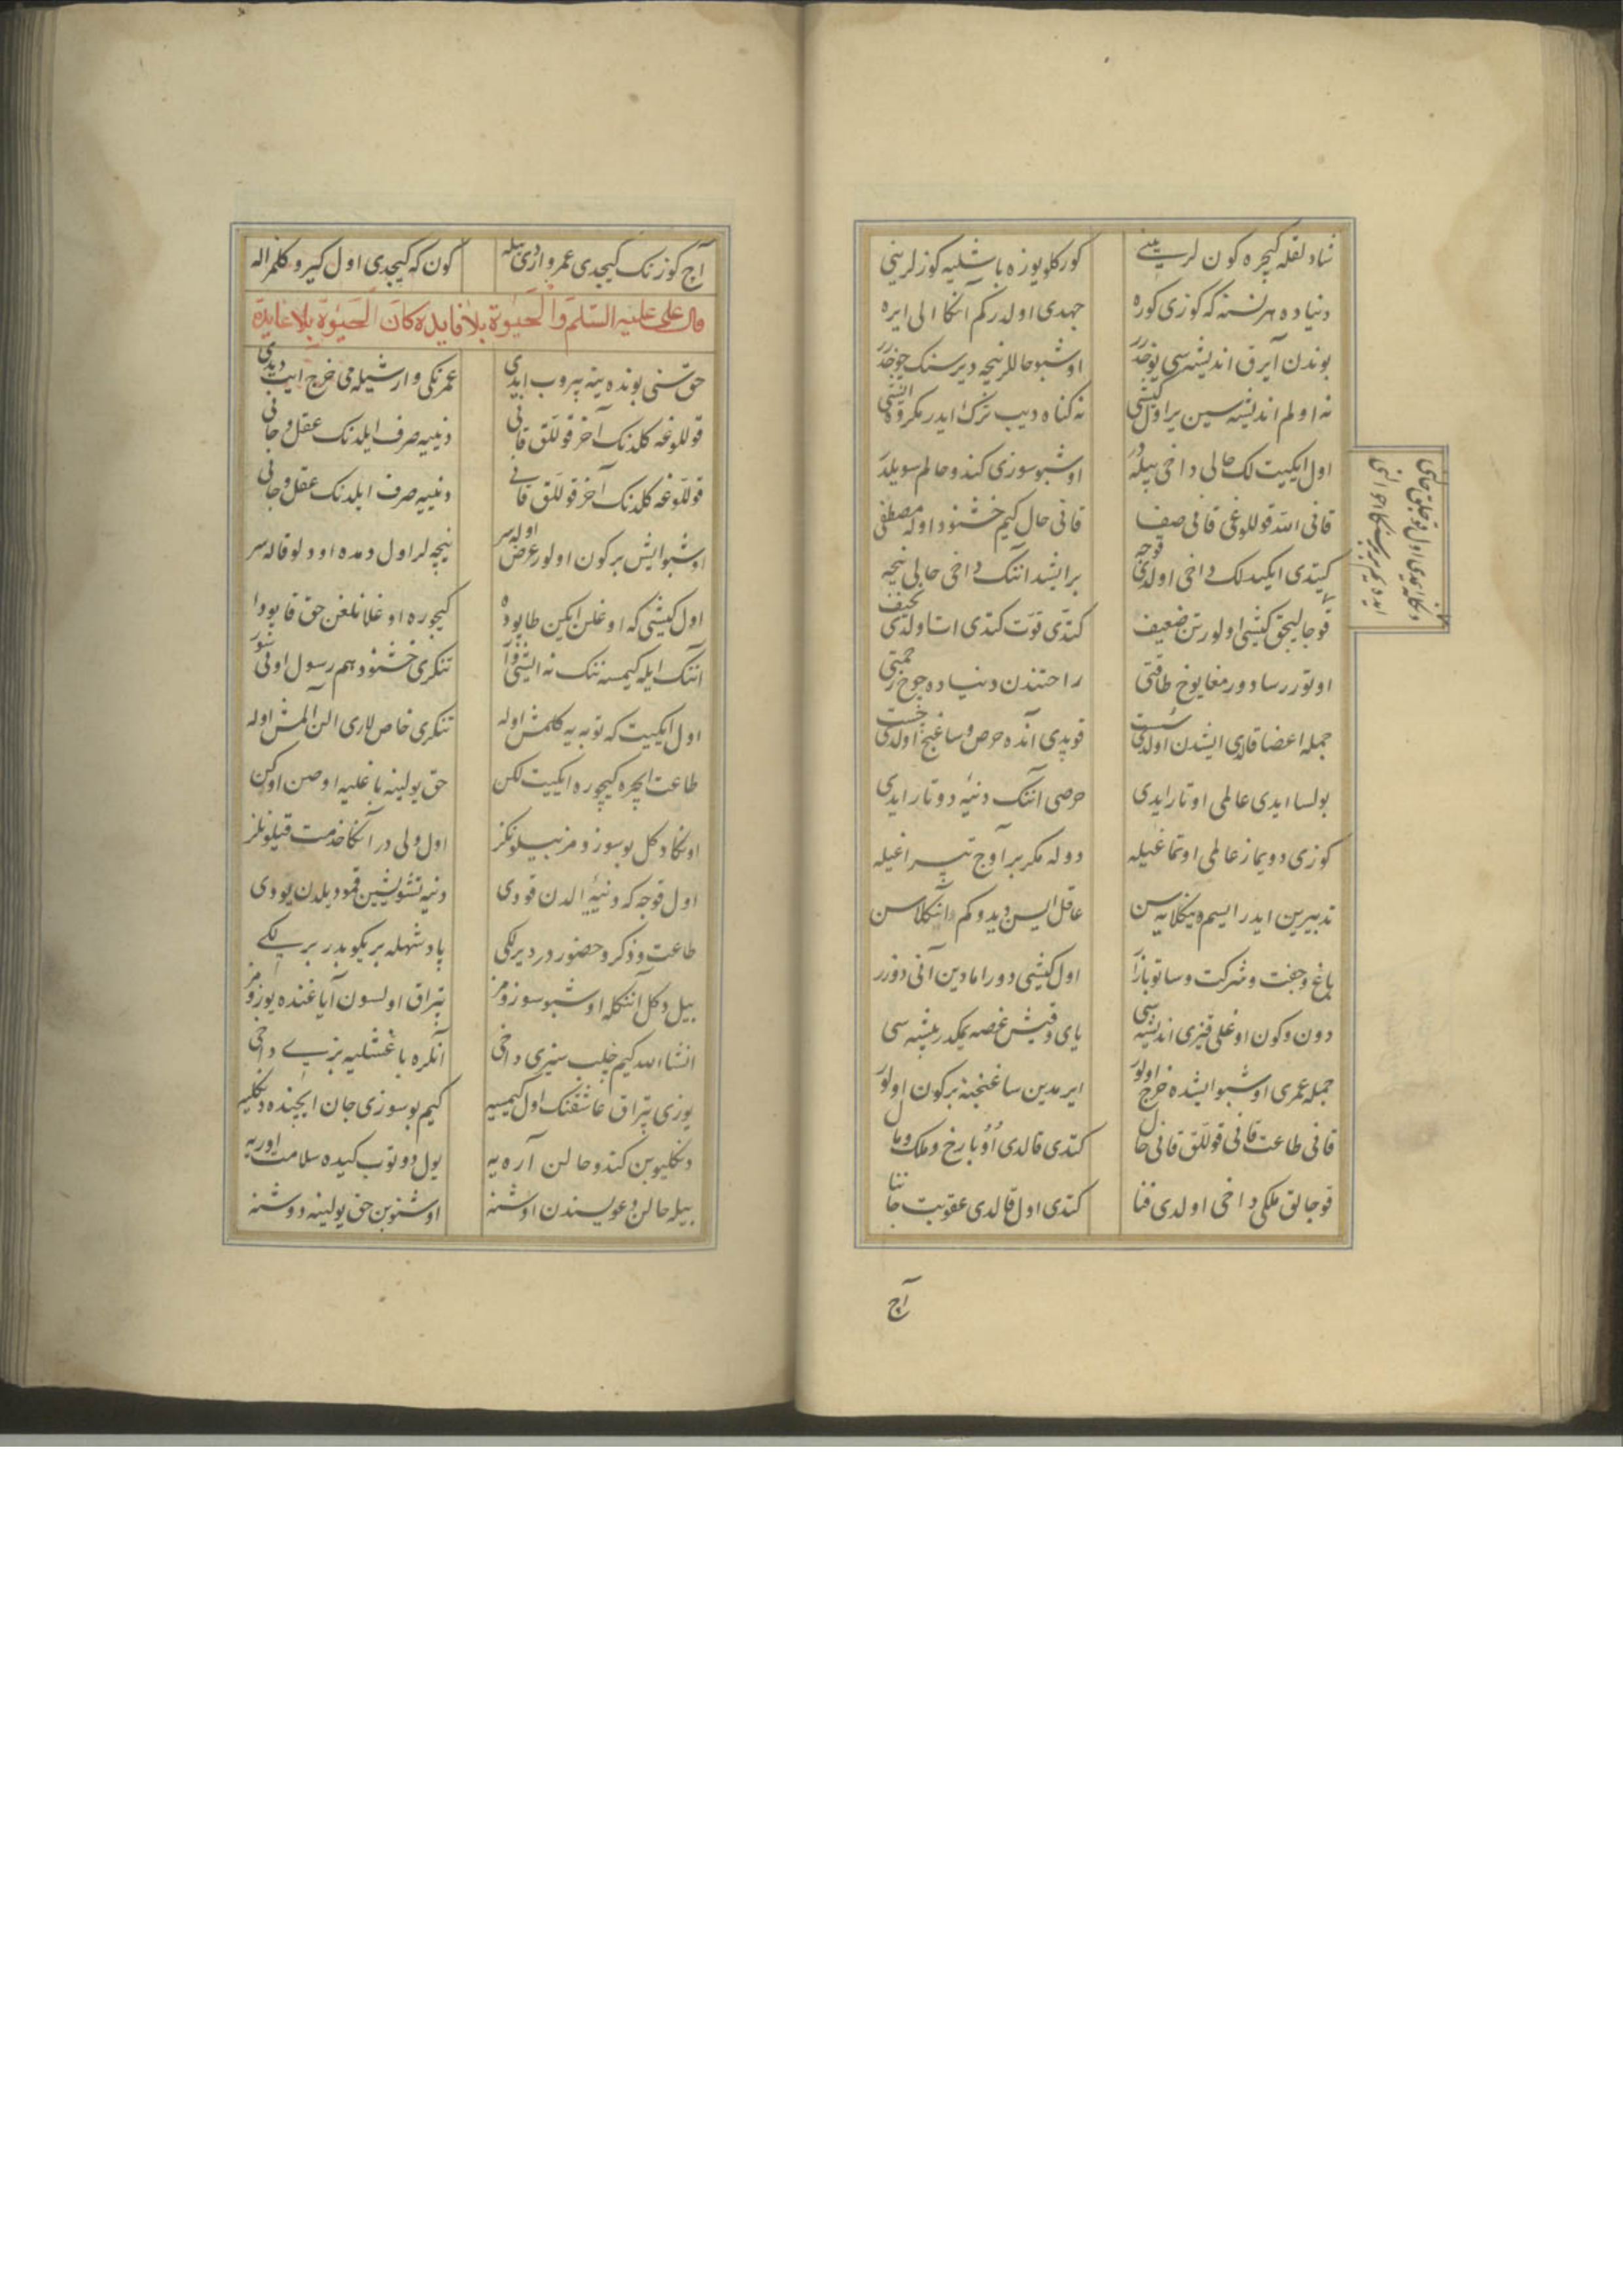 شادلقله كچره كون لرینی كوركلو یوزه باشلیه كوزلرینی
دنیاده هر نسنه كه كوزی كوره جهدی اولدركم آنكا الی ایره
بوندن آیرق اندیشه‌سی یوخدر اوشبو حاللر نیجه دیرسنك چوخدر
نه اولم اندیشه‌سین یر اول كیشی نه كناه دیب ترك ایدر مكروه ایشی
اول ایكیت لك حالی داخی بیله در اوشبو سوزی كندو حالم سویلدر
دكله ایمدی اول قوجه‌لق حالنی
ایده‌یم بر بر سنكا احوالنی
قانی الله قوللوغی قانی صفا قانی حال كیم خشنود اوله مصطفی
كیتدی ایكیدلك داخی اولدی قوجه بر ایشد اننك داخی حالی نیجه
قوجالیجق كیشی اولور تن ضعیف كتدی قوت كتدی اتا ولدی نحیف
اوتوررسا دورمغا یوخ طاقتی راحتندن دنیاده چوخ زحمتی
جمله اعضا قلادی ایشدن اولدی سست قوپدی آنده حرص وساغنج اولدی خست
بولسا ایدی عالمی اوتار ایدی حرصی آننك دنیه دوتار ایدی
كوزی دویماز عالمی اوتماغیله دوله مكر بر آوج تپراغیله
تدبیرین ایدر ایسم دیكلایه‌سن عاقل ایسن دیدوكم آنكلاسن
باغ وجفت وشركت وساتو بازار اول كیشی دوراما دین آنی دوزر
دون وكون اوغلی قیزی اندیشه‌سی یای وقیش غصه یمكدر پیشه‌سی
جمله عمری اوشبو ایشده خرج اولور ایرمدین ساغنجنه بر كون اولور
قانی طاعت قانی قوللق قانی حال كتدی قالدی او و بارخ وملك ومال
قوجالق ملكی داخی اولدی فنا كتدی اول قالدی عقوبت جاننا
آچ
آچ كوزنك كیجدی عمر واردی یله كون كه كیجدی اول كیرو كلمز اله
قال علی علیه السلم والحیوة بلا فایده كان الحیوة بلا عایدة
حق سنی بونده ینه پیروب ایدی عمرنكی وارشیله می خرج ایت دیدی
قوللوغه كلدنك آخر قوللق قانی دنییه صرف ایلدنك عقل وجانی
قوللوغه كلدنك آخر قوللق قانی دنییه صرف ایلدنك عقل وجانی
اوشبو ایش بر كون اولور عرض اوله‌سر نیچه لر اول دمده اوولو قاله‌سر
اول كیشی كه اوغلن ایكین طاپوده كیچوره اوغلانلغن حق قاپودا
اننك ایله كیمسه ننك نه ایشی وار تنكری خشنود هم رسول اونی سور
اول ایكیت كه توبه یه كلمش اوله تنكری خاص لاری الن المش اوله
طاعت ایچره كیچوره ایكیت لكن حق یولینه باغلیه اوصن اوكن
اونكاد كل بو سوزومز بیلونكز اول ولی در آنكا خدمت قیلونكز
اول قوجه كه دنییی الدن قودی دنیه تشویشین قمو دیلدن یودی
طاعت وذكر وحضور در دیرلكی پادشهله بریكو بدر بر لكی
بیل دكل آننكله اوشبو سوزومز تپراق اولسون آیاغنده یوزومز
انشاالله كیم جلب سیزی داخی آنلره باغشلیه بزی داخی
یوزی تپراق عاشقننك اول كیمسیه كیم بو سوزی جان ایچنده دیكلیه
دنكلیوبن كندو حالن آره‌یه یول دوتوب كیده سلامت اوریه
بیله حالن دعویسندن اوشنه اوشنوبن حق یولینه دوشنه